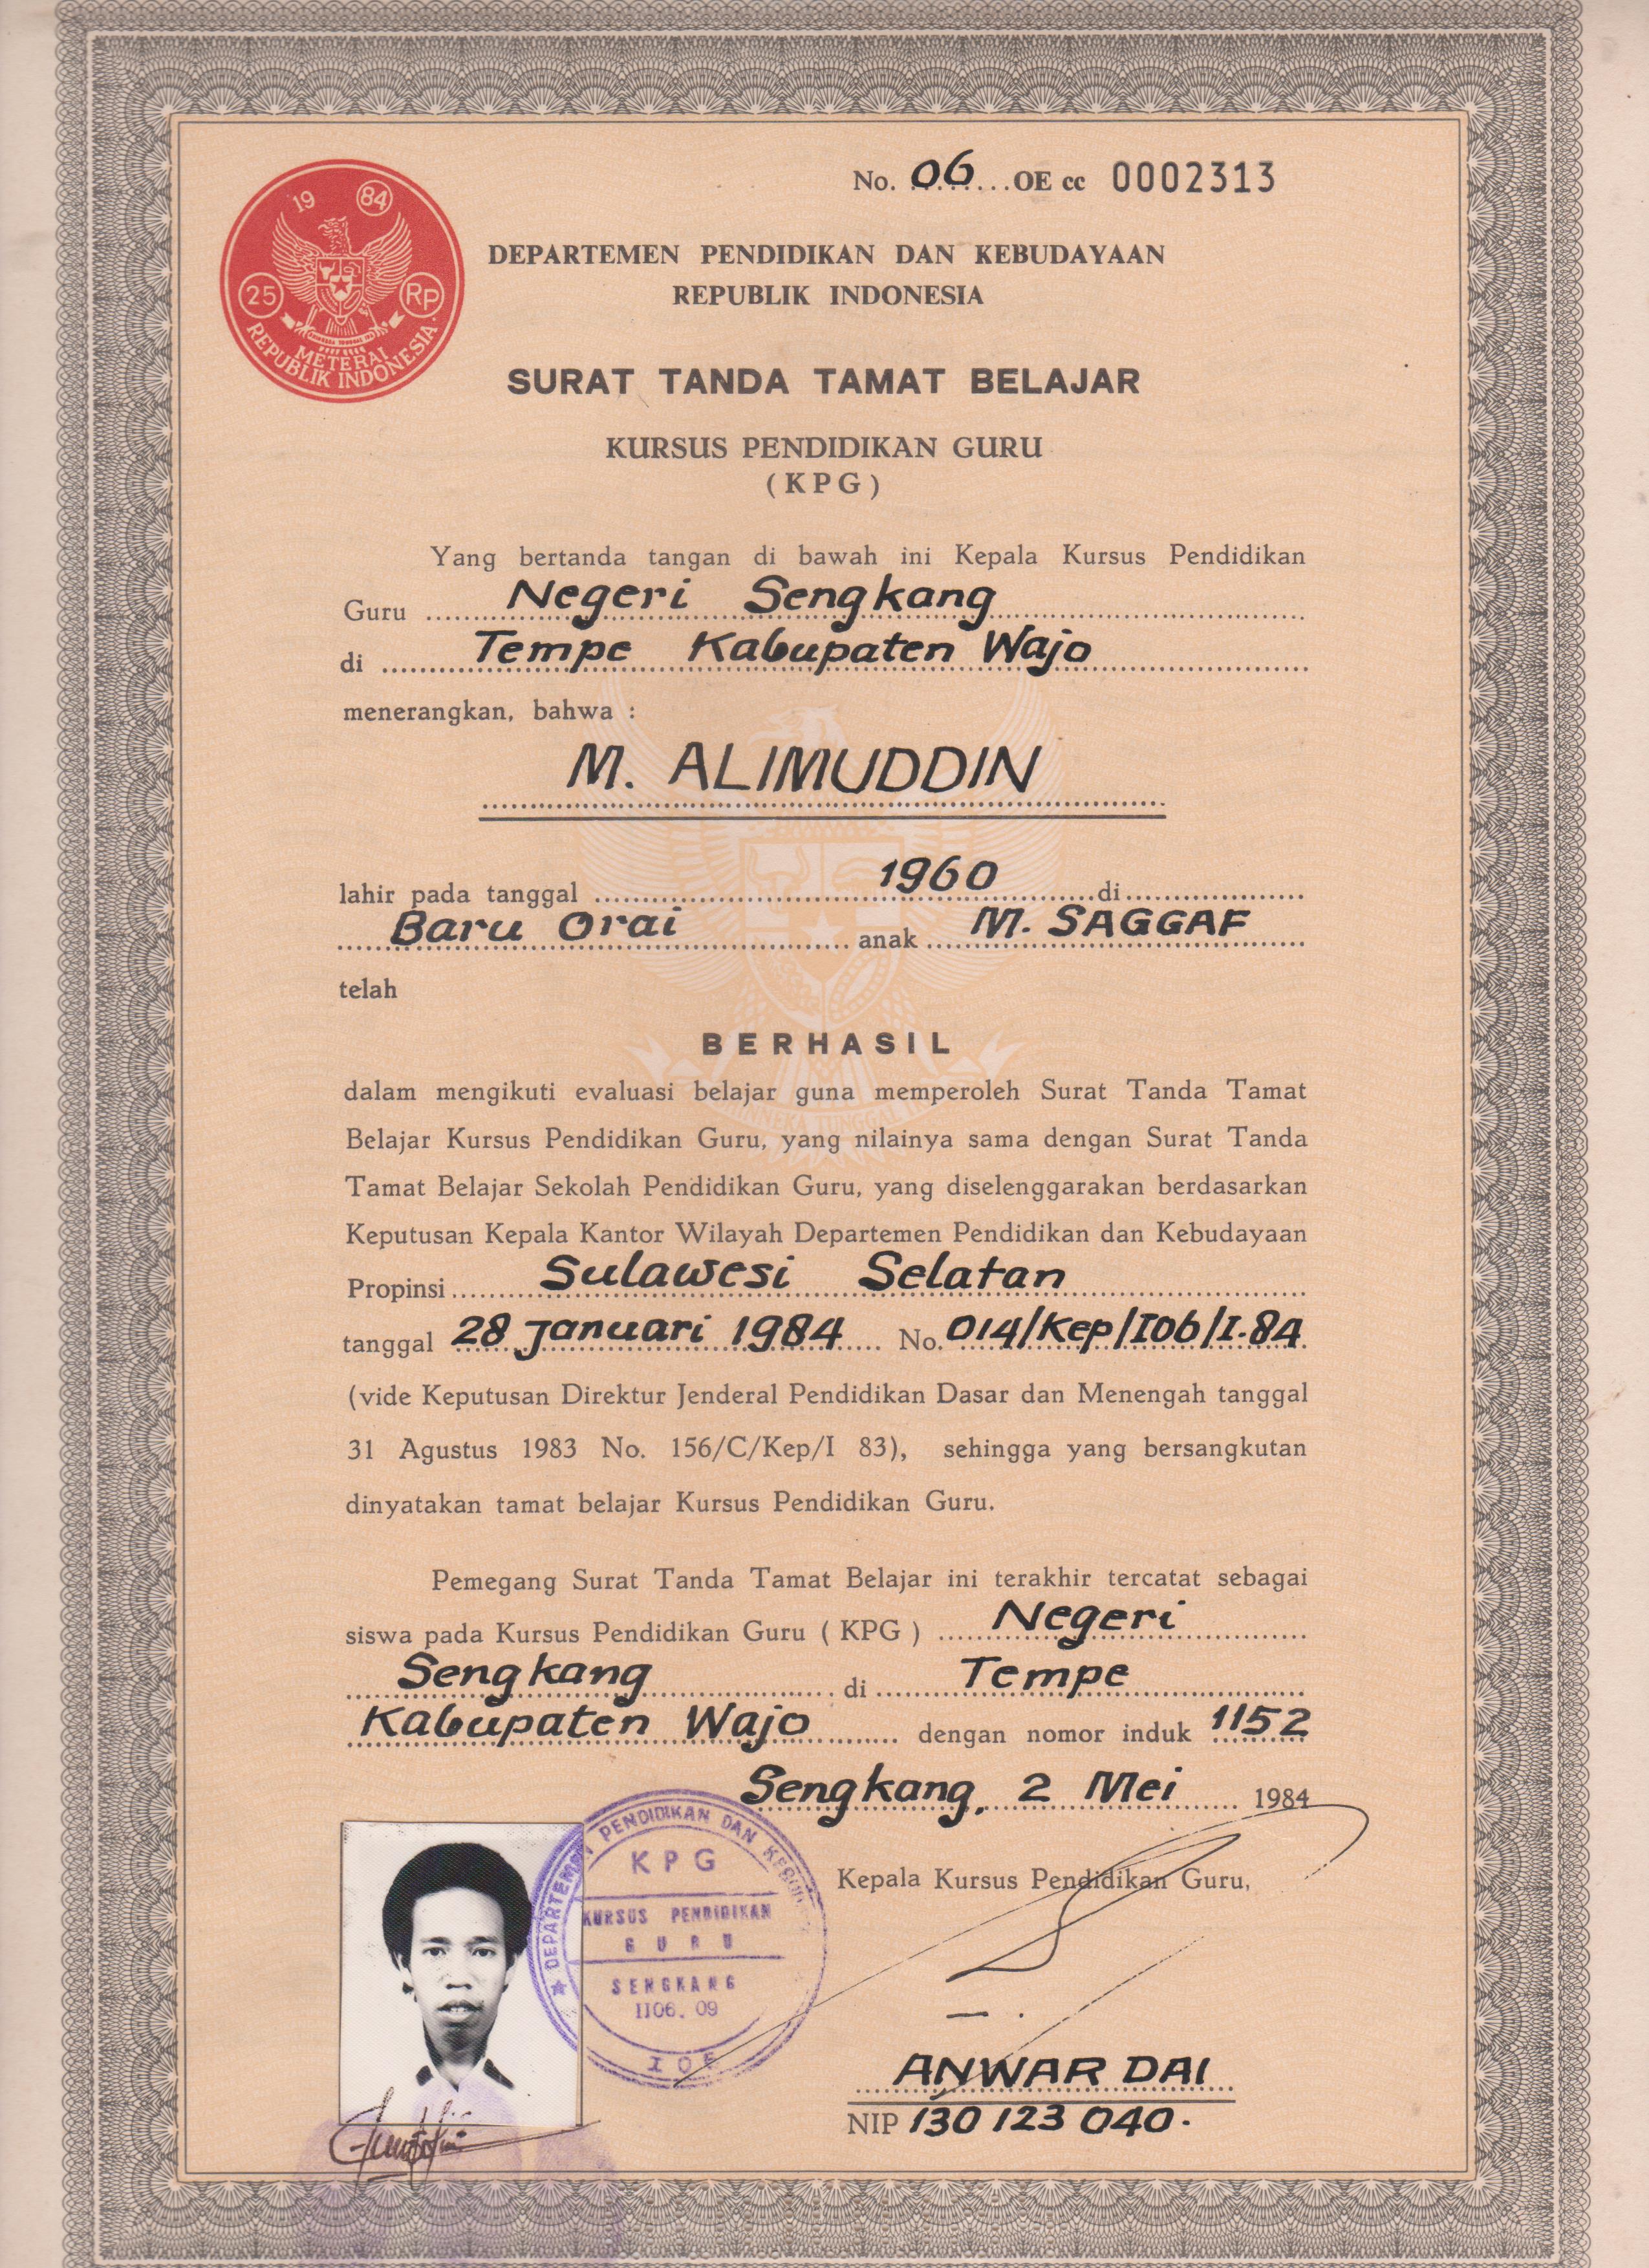 No. 06 OE cc 0002313
19 84
25 Rp
METERAI
REPUBLIK INDONESIA
DEPARTEMEN PENDIDIKAN DAN KEBUDAYAAN
REPUBLIK INDONESIA
SURAT TANDA TAMAT BELAJAR
KURSUS PENDIDIKAN GURU
( K P G )
Yang bertanda tangan di bawah ini Kepala Kursus Pendidikan
Guru Negeri Sengkang
di Tempe Kabupaten Wajo
menerangkan, bahwa :
M. ALIMUDDIN
lahir pada tanggal 1960 di
Baru Orai anak M. SAGGAF
telah
BERHASIL
dalam mengikuti evaluasi belajar guna memperoleh Surat Tanda Tamat
Belajar Kursus Pendidikan Guru, yang nilainya sama dengan Surat Tanda
Tamat Belajar Sekolah Pendidikan Guru, yang diselenggarakan berdasarkan
Keputusan Kepala Kantor Wilayah Departemen Pendidikan dan Kebudayaan
Propinsi Sulawesi Selatan
tanggal 28 Januari 1984 No. 014/Kep/I06/I.84
(vide Keputusan Direktur Jenderal Pendidikan Dasar dan Menengah tanggal
31 Agustus 1983 No. 156/C/Kep/I 83), sehingga yang bersangkutan
dinyatakan tamat belajar Kursus Pendidikan Guru.
Pemegang Surat Tanda Tamat Belajar ini terakhir tercatat sebagai
siswa pada Kursus Pendidikan Guru ( KPG ) Negeri
Sengkang di Tempe
Kabupaten Wajo dengan nomor induk 1152
Sengkang, 2 Mei 1984
Kepala Kursus Pendidikan Guru,
DEPARTEMEN PENDIDIKAN DAN
KPG
KURSUS PENDIDIKAN
GURU
SENGKANG
1106. 09
ANWAR DAI
NIP 130 123 040.